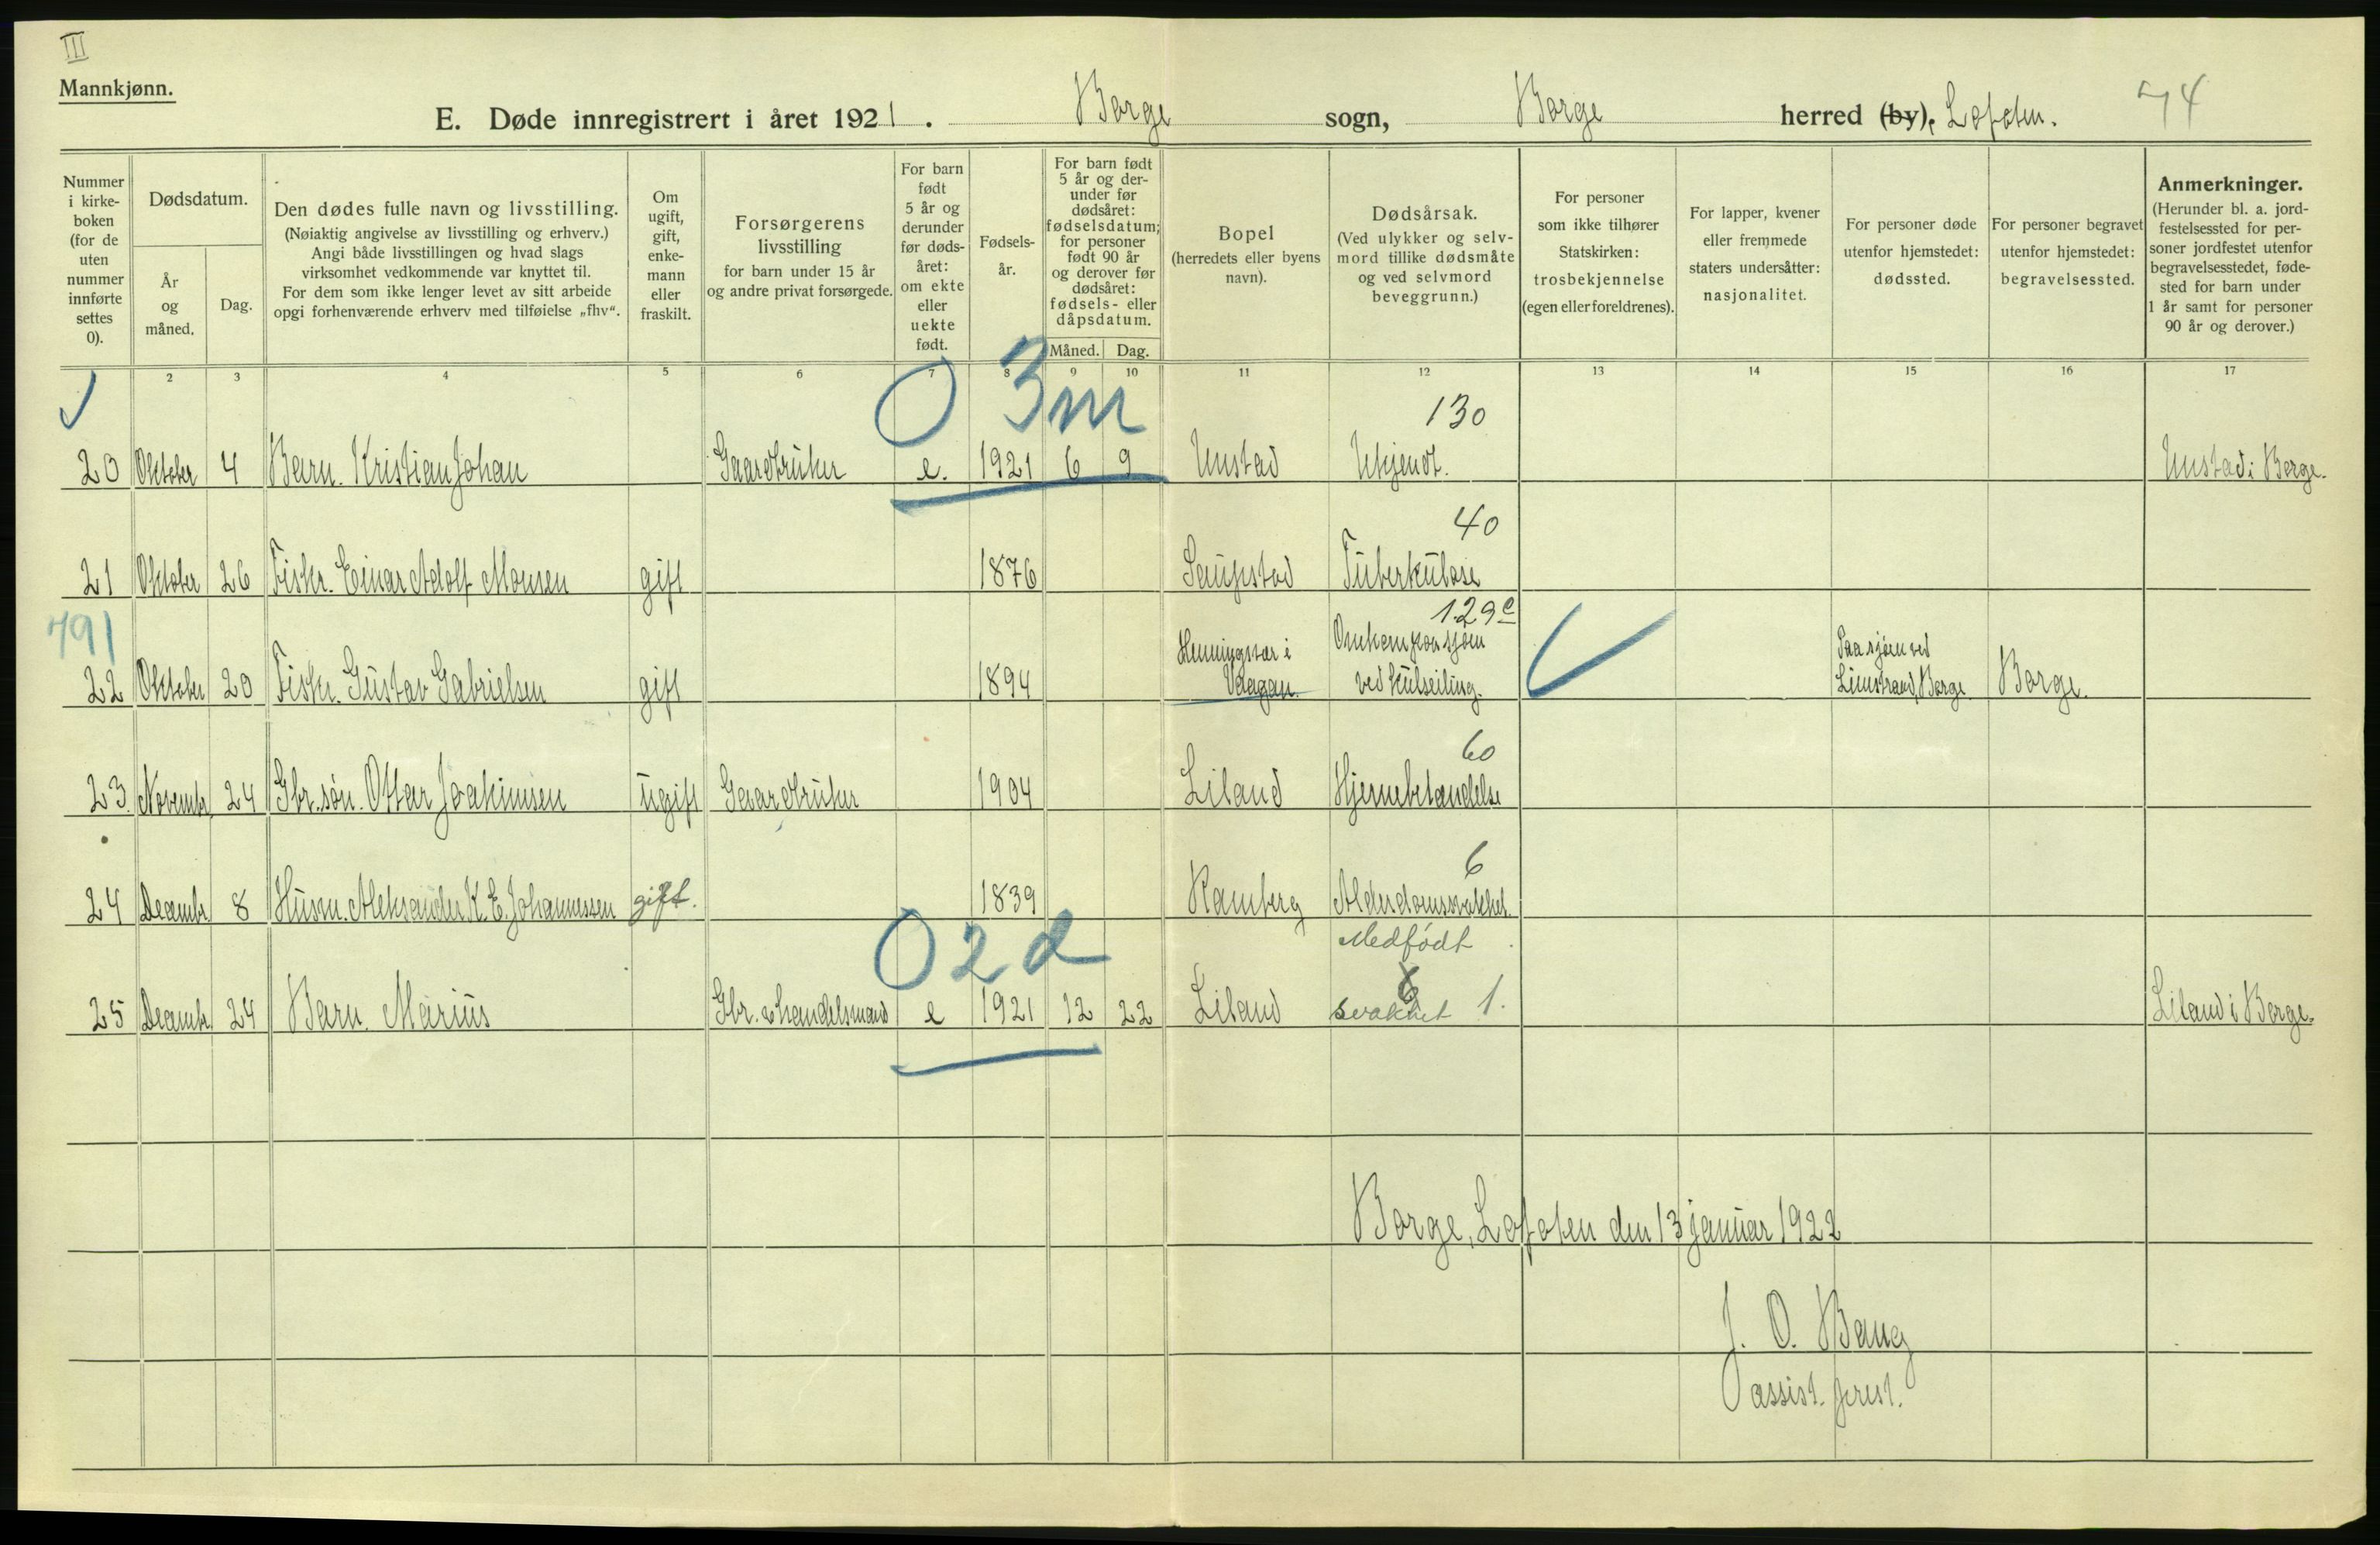 III
Mannkjønn.
E. Døde innregistrert i året 1921. Borge sogn, Borge herred (by), Lofoten. 74
Nummer i kirke-boken (for de uten nummer innførte settes 0).
Dødsdatum.
År og måned.
Dag.
Den dødes fulle navn og livsstilling.
(Nøiaktig angivelse av livsstilling og erhverv.)
Angi både livsstillingen og hvad slags
virksomhet vedkommende var knyttet til.
For dem som ikke lenger levet av sitt arbeide
opgi forhenværende erhverv med tilføielse „fhv“.
Om ugift, gift, enke-mann eller fraskilt.
Forsørgerens livsstilling
for barn under 15 år
og andre privat forsørgede.
For barn født 5 år og derunder før døds-året: om ekte eller uekte født.
Fødsels-år.
For barn født 5 år og der-under før dødsåret: fødselsdatum; for personer født 90 år og derover før dødsåret: fødsels- eller dåpsdatum.
Måned. Dag.
Bopel
(herredets eller byens navn).
Dødsårsak.
(Ved ulykker og selv-mord tillike dødsmåte og ved selvmord beveggrunn.)
For personer som ikke tilhører Statskirken: trosbekjennelse (egen eller foreldrenes).
For lapper, kvener eller fremmede staters undersåtter: nasjonalitet.
For personer døde utenfor hjemstedet: dødssted.
For personer begravet utenfor hjemstedet: begravelsessted.
Anmerkninger.
(Herunder bl. a. jord-festelsessted for per-soner jordfestet utenfor begravelsesstedet, føde-sted for barn under 1 år samt for personer 90 år og derover.)
2 3 4 5 6 7 8 9 10 11 12 13 14 15 16 17
0 3 m
130
20 Oktober 4 Barn. Kristian Johan Gaardbruker e. 1921 6 9 Unstad Ukjendt. Unstad i Borge.
40
21 Oktober 26 Fisker. Einar Adolf Monsen gift 1876 Saupstad Tuberkulose
791
129c
22 Oktober 20 Fisker. Gustav Gabrielsen gift 1894 Henningsvær i Vaagan. Omkom paa sjøen ved kulseiling. Paa sjøen ved Limstrand, Borge. Borge.
60
23 Novembr. 24 Gbr. søn. Ottar Joakimsen ugift Gaardbruker 1904 Liland Hjernebetændelse
6
24 Decembr. 8 Husm. Aleksander K. E. Johannessen gift. 1839 Ramberg Alderdomssvakhet.
0 2 d
25 Decembr. 24 Barn. Marius Gbr. & handelsmand e 1921 12 22 Liland Medfødt svakhet 1. Liland i Borge.
Borge, Lofoten den 13 januar 1922
J. O. Bang
assist. prest.